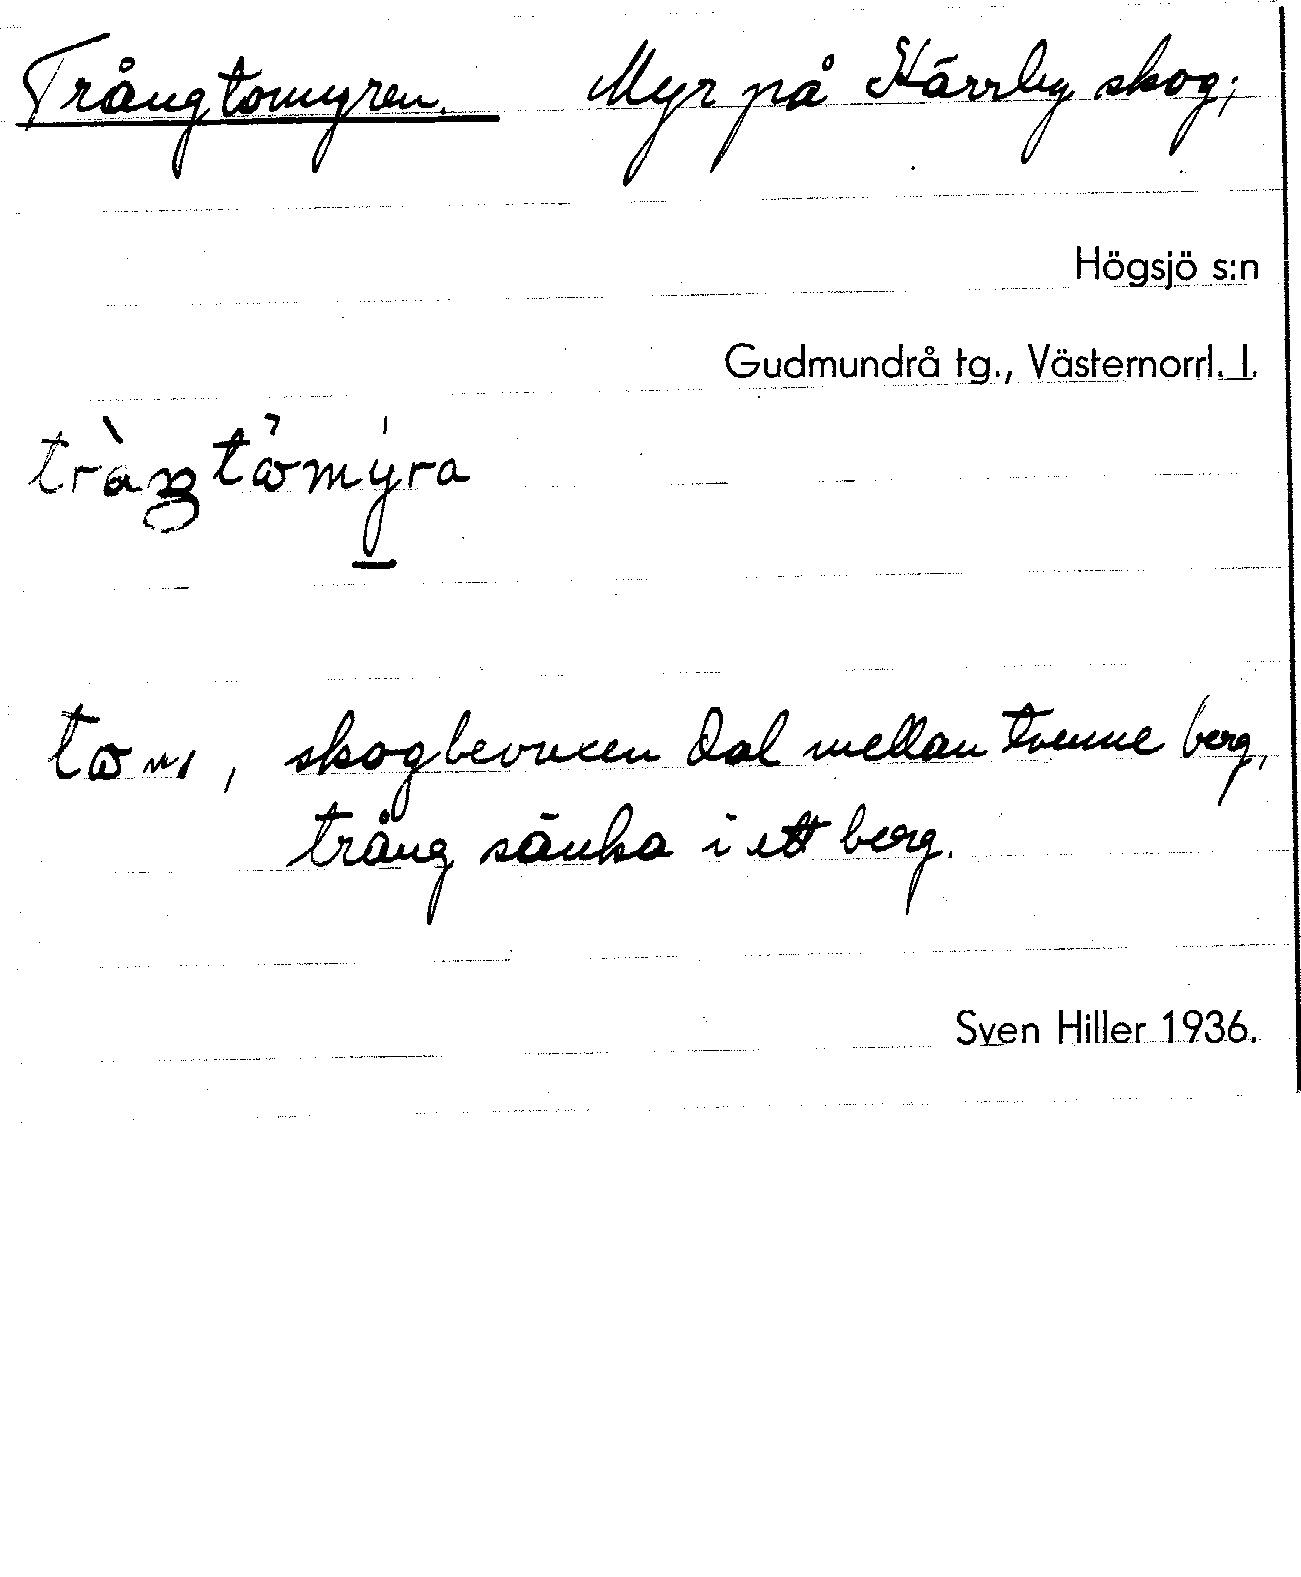 Trångtomyren. Myr på Härrby skog;
Högsjö s:n
Gudmundrå tg., Västernorrl. l.
skogbevuxen dal mellan tvenne berg,
trång sänka i ett berg.
Sven Hiller 1936.